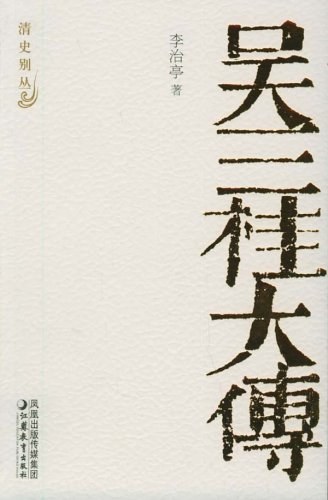 清史别丛
李治亭 著
吴三桂大傳
凤凰出版传媒集团
江苏教育出版社